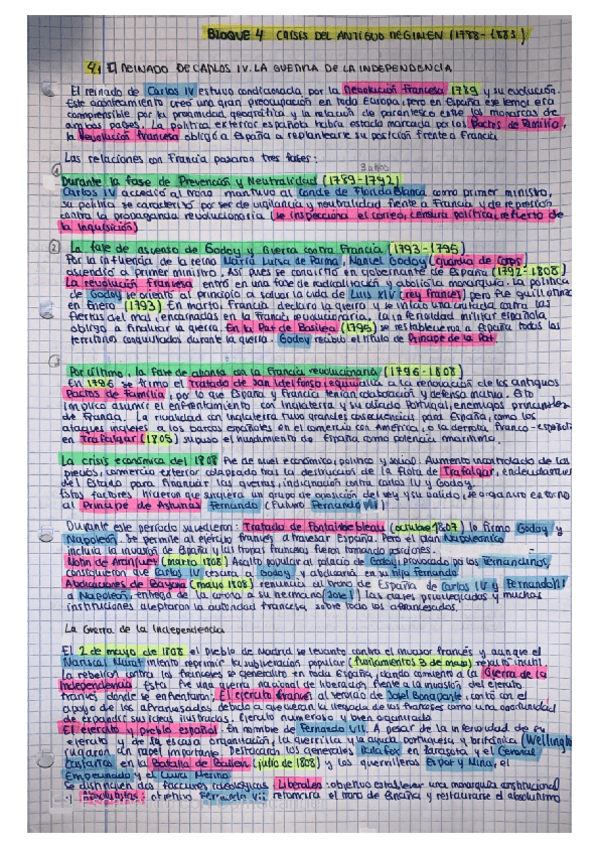 BLOQUE 4 CRISIS DEL ANTIGUO REGIMEN (1788-1833)
4.1 El REINADO DE CARLOS IV. LA GUERRA DE LA INDEPENDENCIA
El reinado de Carlos IV estuvo condicionada por la Revolución Francesa 1789 y su evolución.
Este acontecimiento creó una gran preocupación en toda Europa, pero en España ese temor era
comprensible por la proximidad geográfica y la relación de parentesco entre los monarcas de
ambos países. La política exterior española había estado marcada por los Pactos de Familia,
la Revolución francesa obligó a España a replantearse su posición frente a Francia
Las relaciones con Francia pasaron tres fases:
Durante la fase de Prevención y Neutralidad (1789-1792)
Carlos IV accedió al trono mantuvo al conde de Floridablanca como primer ministro,
su política se caracterizó por ser de vigilancia y neutralidad frente a Francia y de represión
contra la propaganda revolucionaria (se inspecciona el correo, censura política, refuerzo de
la inquisición)
2 La fase de ascenso de Godoy y Guerra contra Francia (1793-1795)
Por la influencia de la reina María Luisa de Parma, Manuel Godoy (guardia de Corps)
ascendió a primer ministro. Así pues se convirtió en gobernante de España (1792-1808)
La revolución francesa entró en una fase de radicalización y abolió la monarquía. La política
de Godoy se orientó al principio a salvar la vida de Luis XIV (rey francés) pero fue guillotinado
en Enero (1793) En marzo Francia declaró la guerra y se inició una cruzada contra las
fuerzas del mal, encarnadas en la Francia revolucionaria, la inferioridad militar española
obligó a finalizar la guerra. En la Paz de Basilea (1795) se restablecieron a España todos los
territorios conquistados durante la guerra. Godoy recibió el título de Príncipe de la Paz
Por último, la fase de alianza con la Francia revolucionaria (1796-1808)
En 1796 se firmó el Tratado de San Ildefonso, equivalía a la renovación de los antiguos
Pactos de Familia, por lo que España y Francia tenían colaboración y defensa mutua. Esto
implicó asumir el enfrentamiento con Inglaterra y su aliado Portugal, enemigos principales
de Francia. La rivalidad con Inglaterra tuvo grandes consecuencias para España, como los
ataques ingleses a los barcos españoles en el comercio con América, o la derrota franco-española
en Trafalgar (1805) supuso el hundimiento de España como potencia marítima.
La crisis económica del 1808 fue de nivel económico, político y social. Aumento incontrolado de los
precios, comercio exterior colapsado tras la destrucción de la flota de Trafalgar, endeudamiento
del Estado para financiar las guerras, indignación contra Carlos IV y Godoy.
Estos factores hicieron que surgiera un grupo de oposición del rey y su valido, se organizó en torno
al Príncipe de Asturias Fernando (futuro Fernando VII)
Durante este período sucedieron: Tratado de Fontainebleau (octubre 1807) lo firmó Godoy y
Napoleón. Se permite al ejército francés atravesar España. Pero el plan Napoleónico
incluía la invasión de España y las tropas francesas fueron tomando posiciones.
Motín de Aranjuez (marzo 1808) Asalto popular al palacio de Godoy, provocado por los Fernandinos,
consiguieron que Carlos IV cesara a Godoy y abdicara en su hijo Fernando
Abdicaciones de Bayona (mayo 1808) renuncia al trono de España de Carlos IV y Fernando VII
a Napoleón, entrega de la corona a su hermano (José I) las clases privilegiadas y muchas
instituciones aceptaron la autoridad francesa, sobre todo los afrancesados.
La Guerra de la Independencia
El 2 de mayo de 1808 el pueblo de Madrid se levantó contra el invasor francés y aunque el
Mariscal Murat intentó reprimir la sublevación popular (fusilamientos 3 de mayo) resultó inútil
La rebelión contra los franceses se generalizó en toda España, dando comienzo a la Guerra de la
Independencia. Esta fue una guerra nacional de liberación frente a la invasión del ejército
francés donde se enfrentaron: El ejército francés al servicio de José I Bonaparte, contó con el
apoyo de los afrancesados debido a que veían la llegada de los franceses como una oportunidad
de expandir sus ideas ilustradas. Ejército numeroso y bien organizado
El ejército y pueblo español. En nombre de Fernando VII. A pesar de la inferioridad de su
ejército y de la escasa organización, la guerrilla y la ayuda portuguesa y británica (Wellington)
jugaron un papel importante. Destacaron los generales Palafox en Zaragoza y el General
Castaños en la Batalla de Bailén (julio de 1808) y los guerrilleros Espoz y Mina, el
Empecinado y el Cura Merino
Se distinguen dos facciones ideológicas: Liberales: objetivo establecer una monarquía constitucional
objetivo Fernando VII retomara el trono de España y restaurase el absolutismo